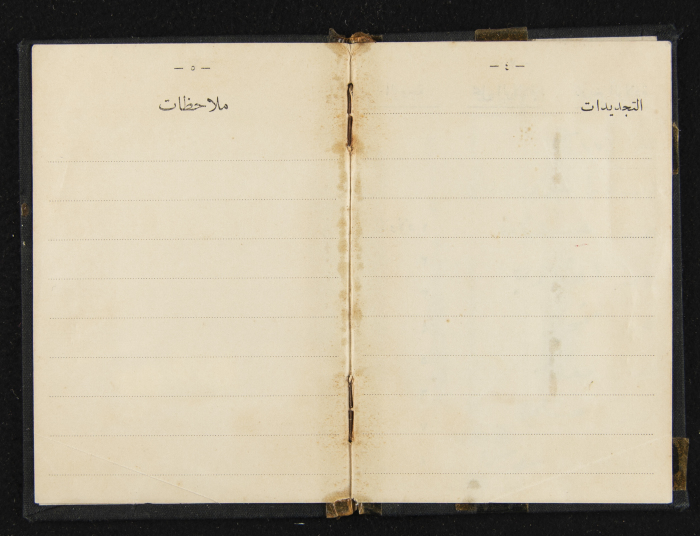 - ٤ -
التجديدات
- ٥ -
ملاحظات